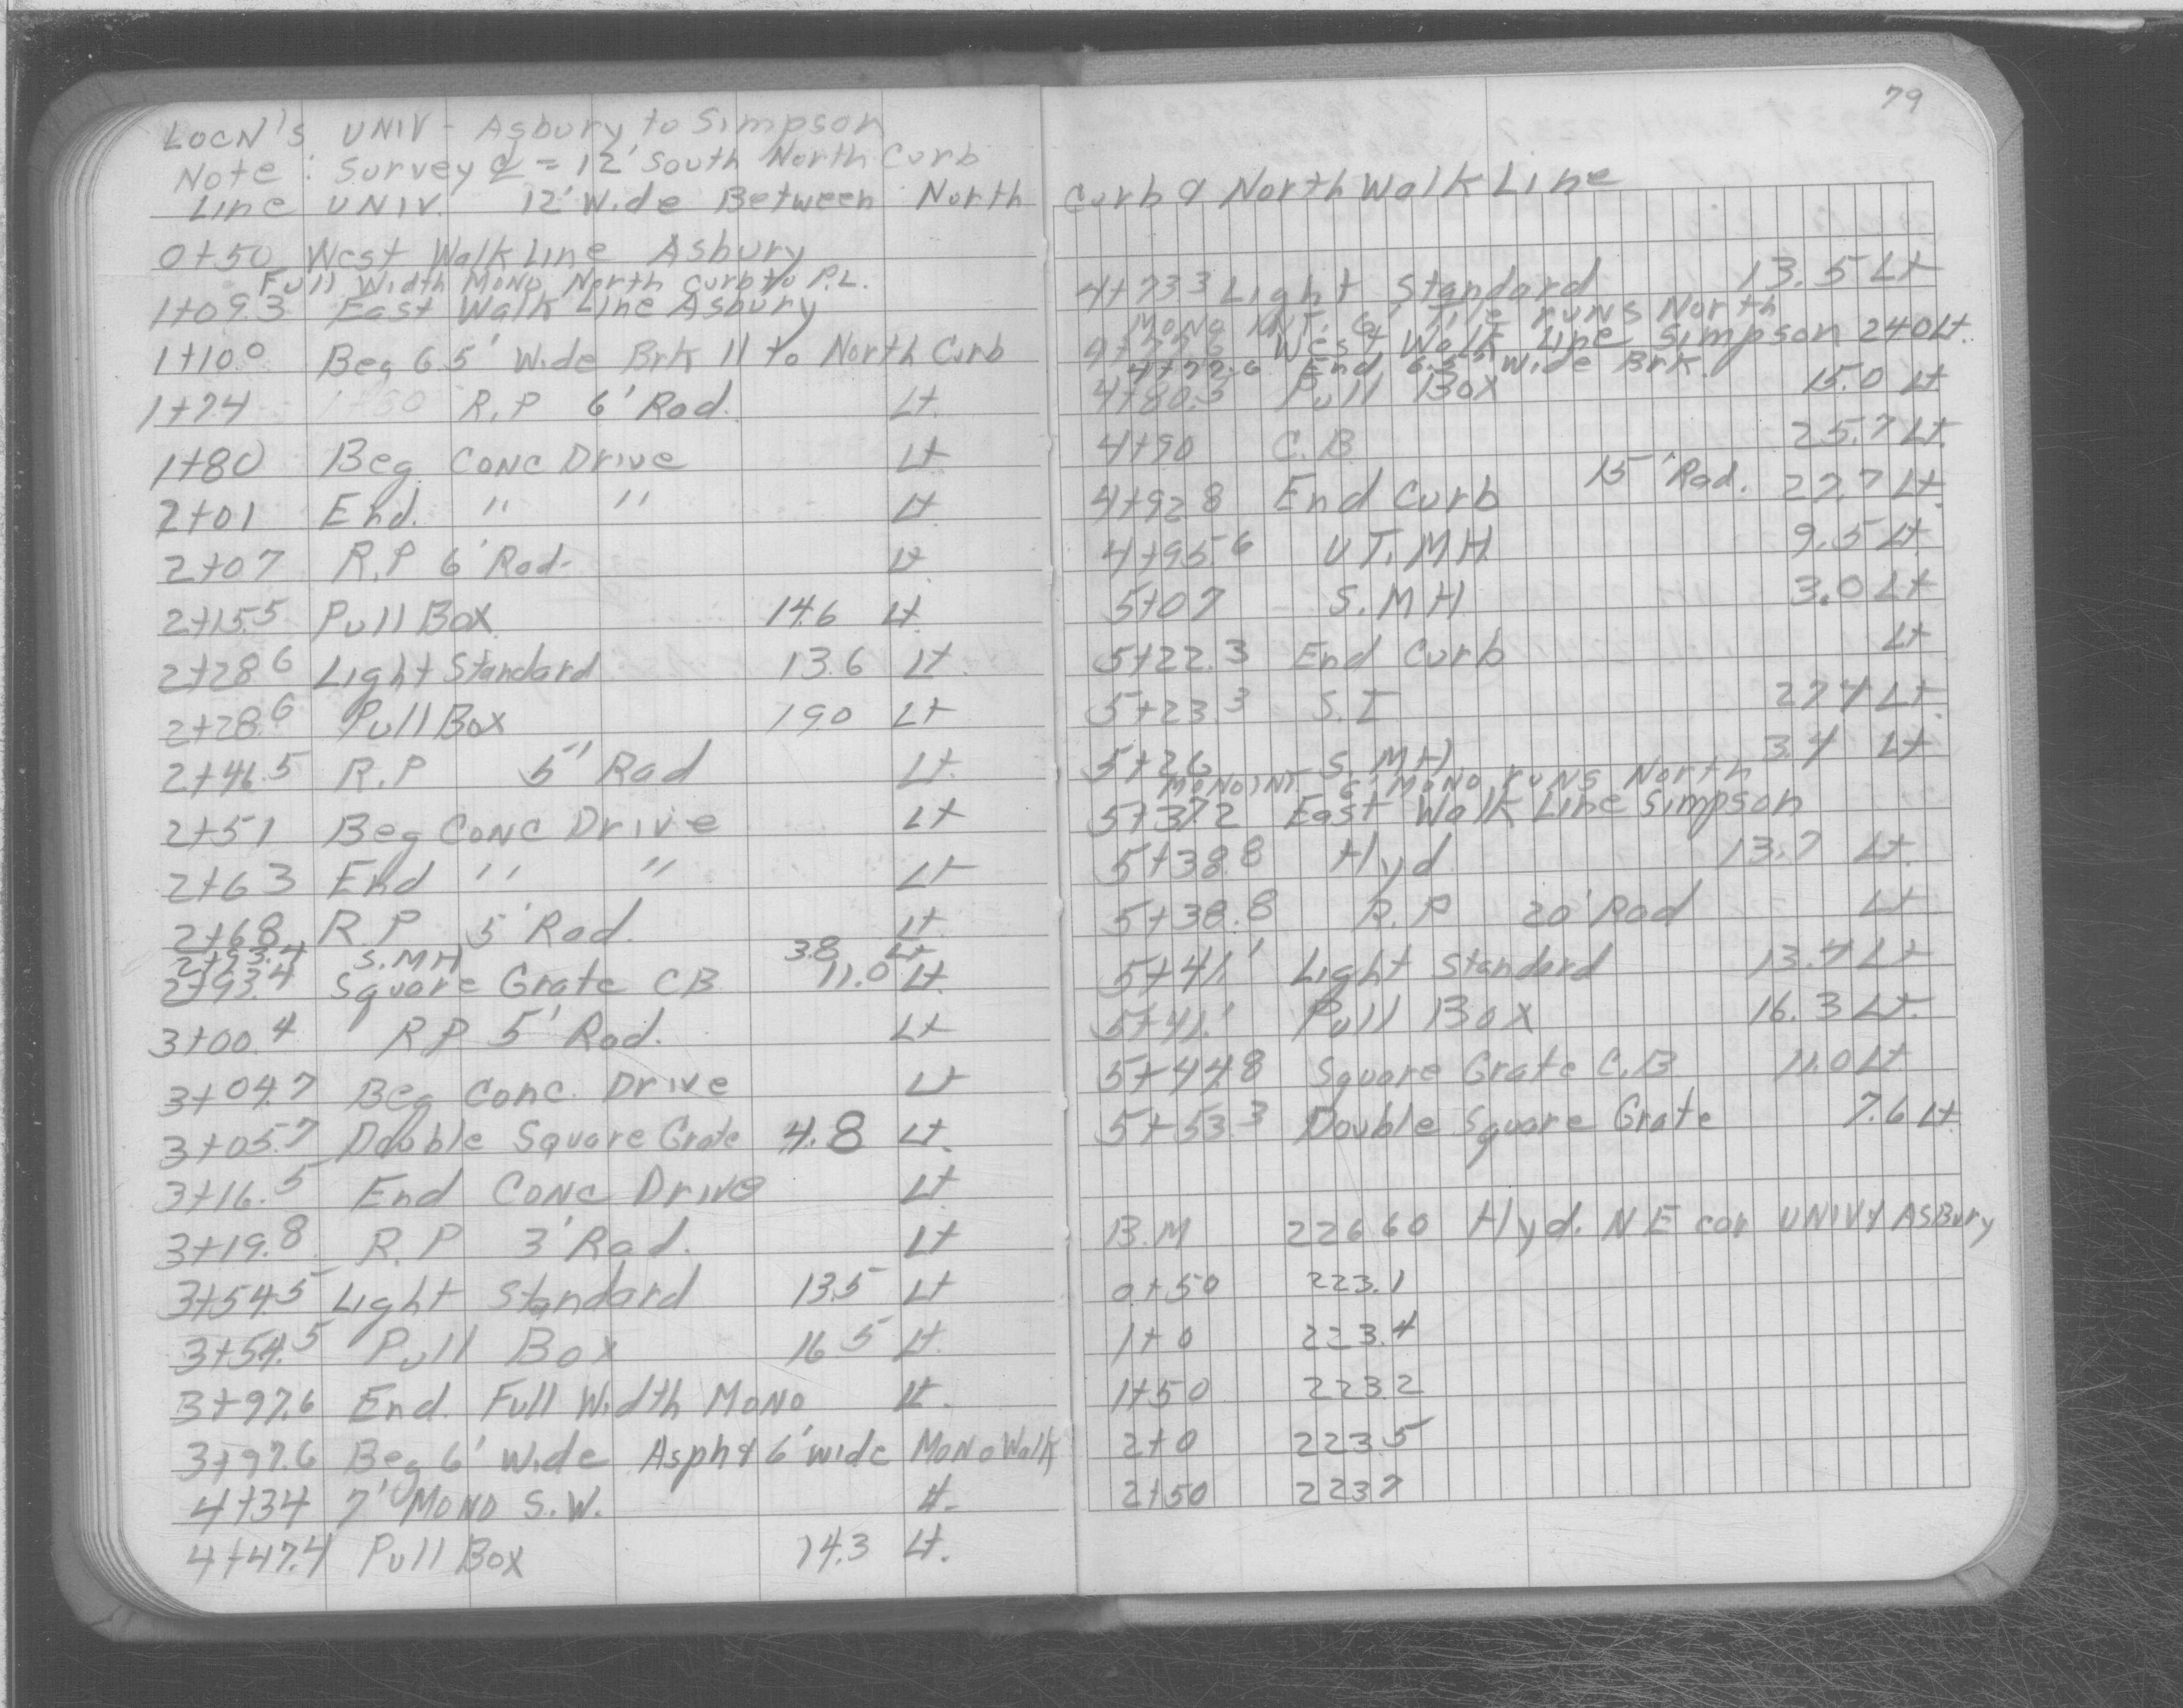 LOCN's UNIV - Asbury to Simpson
Note: Survey ℄ = 12' South North Curb
Line UNIV. 12' Wide Between North
0+50 West Walk Line Asbury
Full Width Mono North Curb to P.L.
1+09.3 East Walk Line Asbury
1+10.0 Beg 6.5' Wide Brk || to North Curb
1+74 R.P 6' Rad. Lt.
1+80 Beg. Conc Drive Lt
2+01 End. " " Lt
2+07 R.P 6' Rad. Lt.
2+15.5 Pull Box 14.6 Lt.
2+28.6 Light Standard 13.6 Lt.
2+28.6 Pull Box 19.0 Lt
2+46.5 R.P 5' Rad Lt.
2+51 Beg Conc Drive Lt
2+63 End " " Lt
2+68 R.P 5' Rad. Lt.
2+93.4 S.MH 3.8 Lt
2+93.4 Square Grate CB 11.0 Lt.
3+00.4 R.P 5' Rad. Lt
3+04.7 Beg Conc. Drive Lt
3+05.7 Double Square Grate 4.8 Lt.
3+16.5 End Conc Drive Lt
3+19.8 R.P 3' Rad. Lt
3+54.5 Light Standard 13.5 Lt
3+54.5 Pull Box 16.5 Lt.
3+97.6 End. Full Width Mono Lt.
3+97.6 Beg 6' Wide Asph & 6' wide Mono Walk
4+34 7' Mono S.W. Lt.
4+47.4 Pull Box 14.3 Lt.
79
Curb & North Walk Line
4+73.3 Light Standard 13.5 Lt
Mono Int. 6' Tile runs North
West Walk Line Simpson 24.0 Lt.
4+77.6 End 6.5' Wide Brk.
4+80.5 Pull Box 15.0 Lt
4+90 C.B 25.7 Lt.
4+92.8 End Curb 15' Rad. 27.7 Lt.
4+95.6 UT.MH. 9.5 Lt.
5+07 S.MH 3.0 Lt
5+22.3 End Curb Lt
5+23.3 S.I 27.4 Lt.
5+26 S.MH. 3.4 Lt
Mono Int. 6' Mono runs North
5+37.2 East Walk Line Simpson
5+38.8 Hyd. 13.7 Lt.
5+38.8 R.P 20' Rad Lt
5+41.1 Light Standard 13.4 Lt
5+41.1 Pull Box 16.3 Lt.
5+44.8 Square Grate C.B 11.0 Lt
5+53.3 Double Square Grate 7.6 Lt
B.M 226.60 Hyd. NE cor UNIV & Asbury
0+50 223.1
1+0 223.4
1+50 223.2
2+0 223.5
2+50 223.7